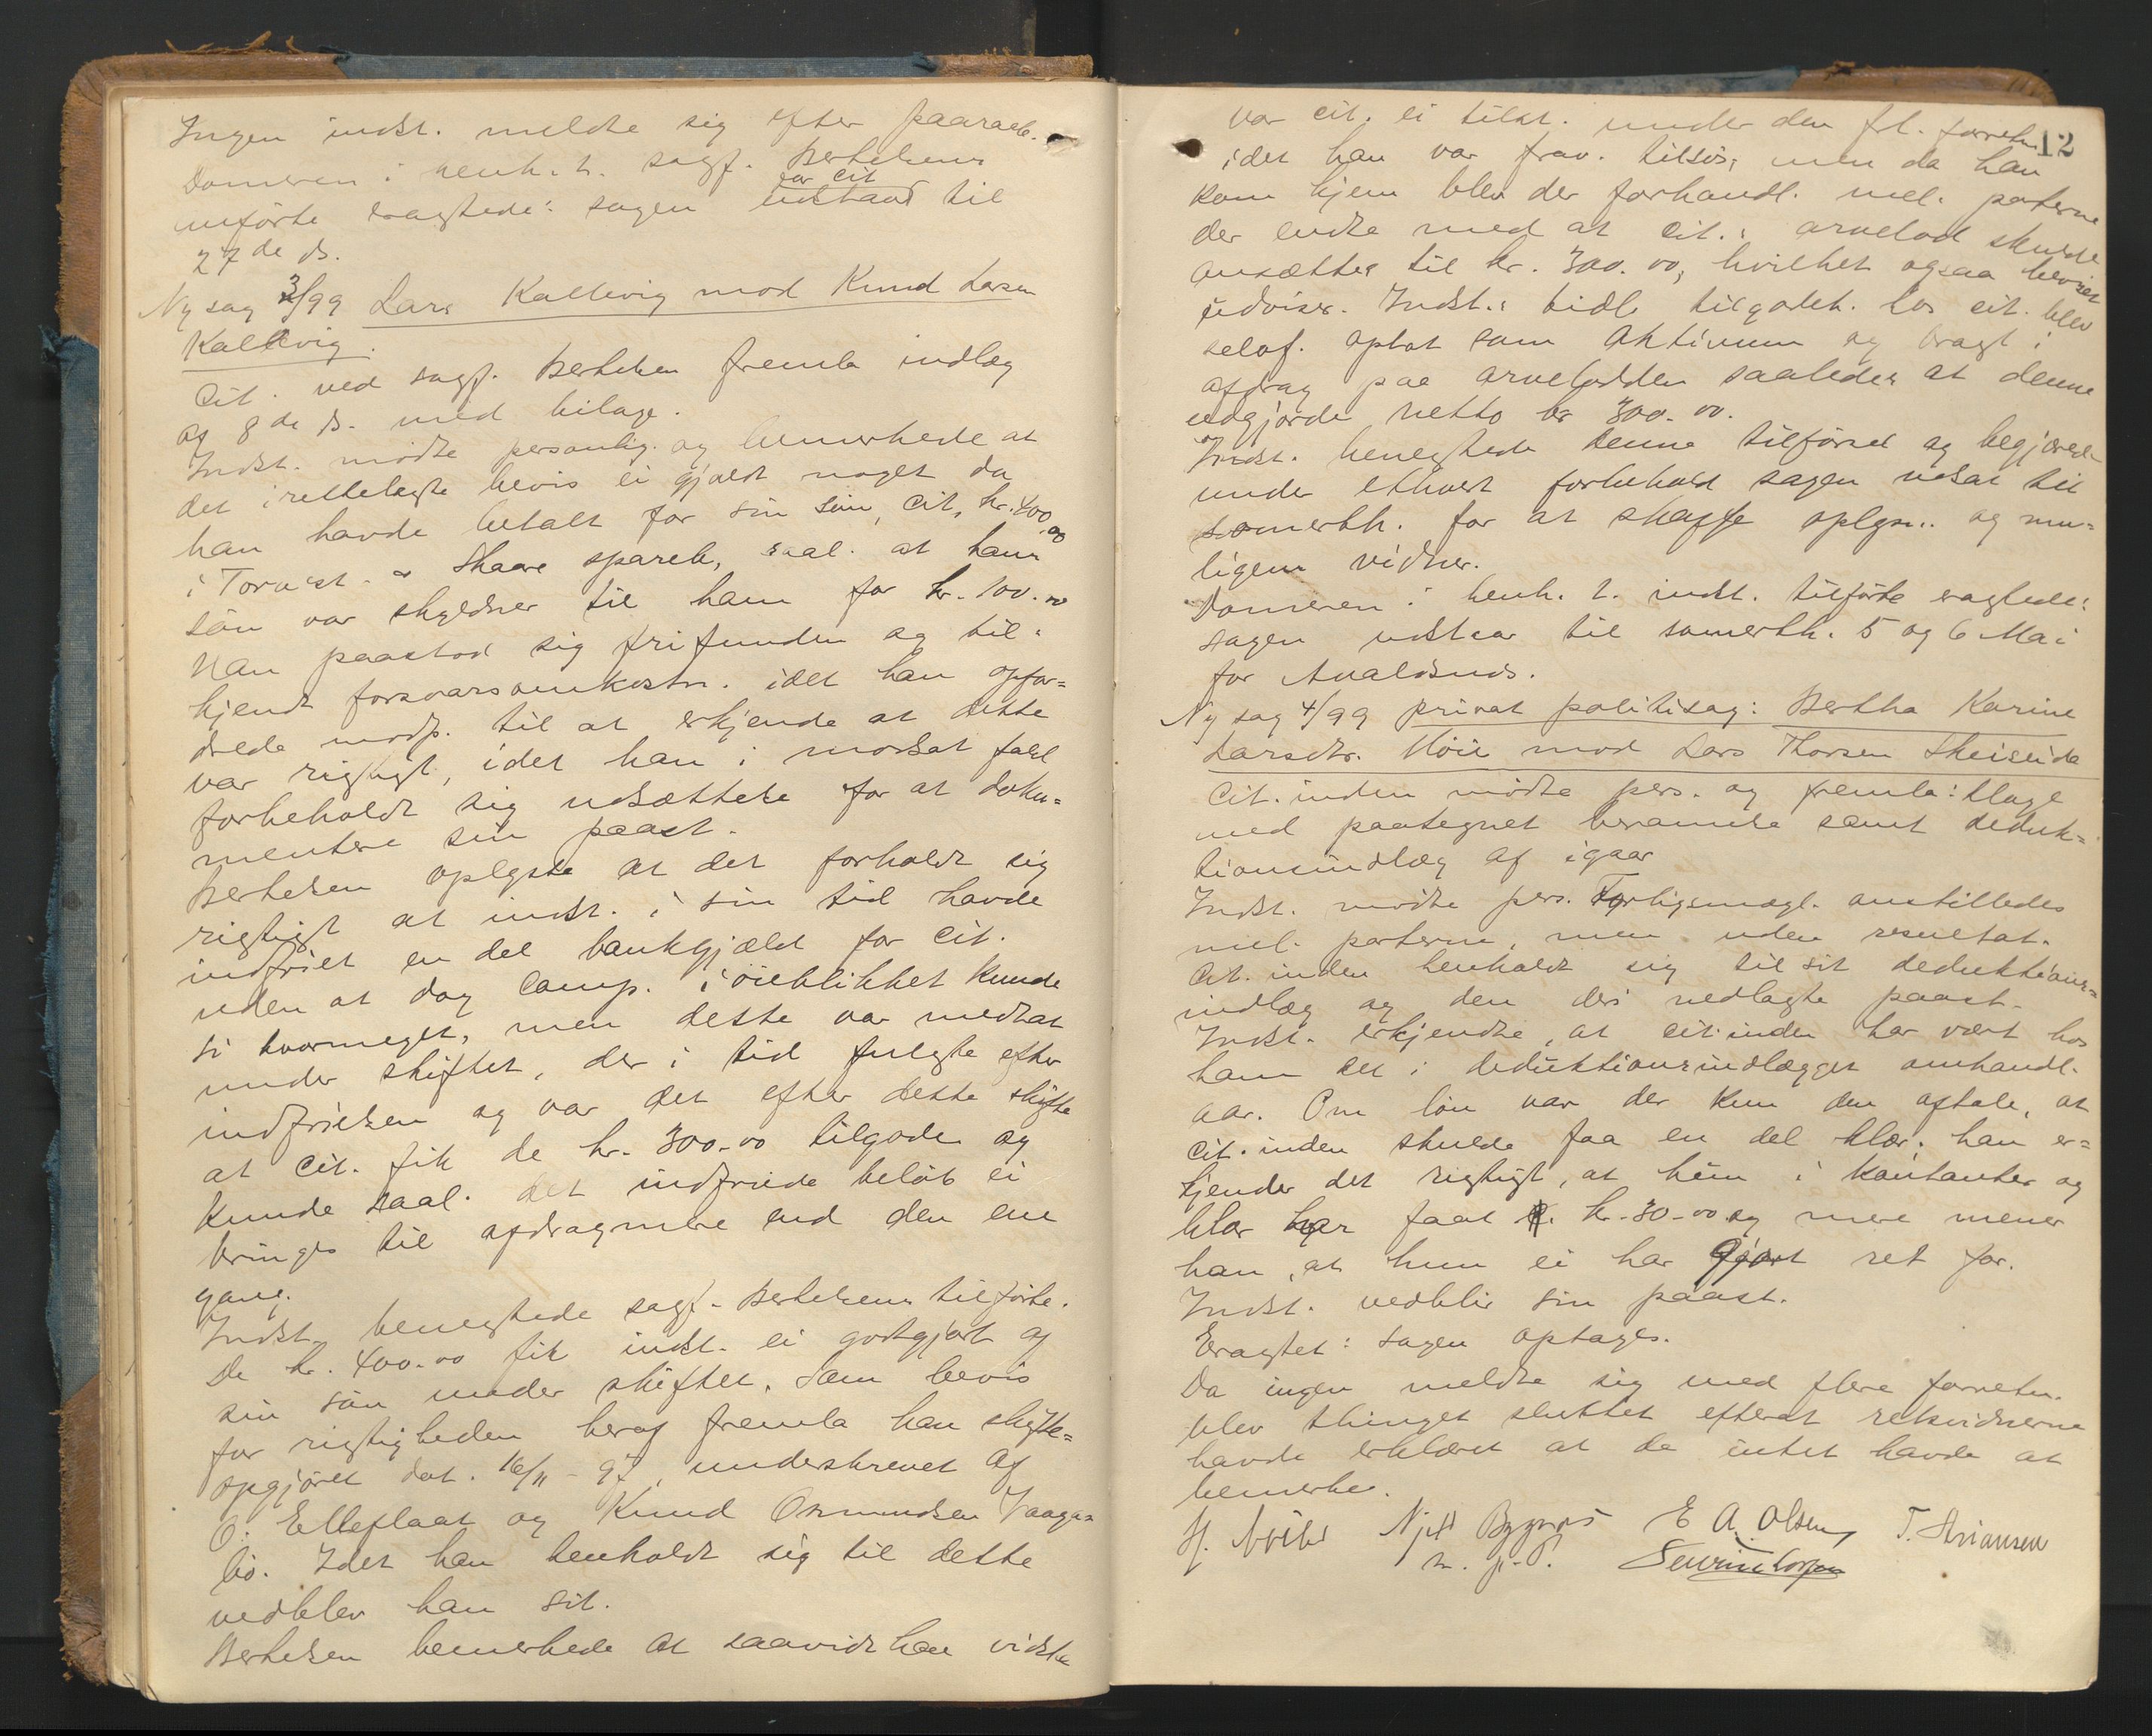 Ingen indst. meldte sig efter paaraab.
Dommeren i henh. t. sagf. Bertelsens
anførte eragtede: sagen for cit udstaar til
27de ds.
Ny sag 3/99 Lars Kallevig mod Knud Larsen
Kallevig.
Cit. ved sagf. Bertelsen fremla indlæg
af 8de ds. med bilage.
Indst. mødte personlig og bemerkede at
det i rettelagte bevis ei gjaldt noget da
han havde betalt for sin søn, cit, kr. 400.00
i Torvast. & Skaare spareb, saal. at hans
søn var skyldner til ham for kr. 100.00
Han paastod sig frifunden og til-
kjendt forsvarsomkostn. idet han opfor=
drede modp. til at erkjende at dette
var rigtigt, idet han i modsat fald
forbeholdt sig udsættelse for at doku=
mentere sin paast.
Bertelsen oplyste at det forholdt sig
rigtigt at indst. i sin tid havde
indfriet en del bankgjæld for cit.
uden at dog comp. i øieblikket kunde
si hvormeget, men dette var medtat
under skiftet, der i tid fulgte efter
indfrielsen og var det efter dette skifte
at cit. fik de kr. 300.00 tilgode og
kunde saal. det indfriede beløb ei
bringes til afdrag mere end den ene
gang.
Indst. benegtede sagf. Bertelsens tilførte.
De kr. 400.00 fik indst. ei godtgjort af
sin søn under skiftet. Som bevis
for rigtigheden heraf fremla han skifte=
opgjøret dat. 16/11 - 97, underskrevet af
O. Elleflaat og Knud Osmundsen Vaage=
bø. Idet han henholdt sig til dette
vedblev han sit.
Bertelsen bemerkede at saavidt han vidste
12
var cit. ei tilst. under den frl. forretn.
idet han var frav. tilsøs, men da han
kom hjem blev der forhandl. mel. parterne
der endte med at cit.s arvelod skulde
ansættes til kr. 300.00, hvilket ogsaa beviset
udviser. Indst.s tidl. tilgodeh. hos cit. blev
selvf. optat som aktivum og bragt i
afdrag paa arvelodden saaledes at denne
udgjorde netto kr 300.00.
Indst. benegtede denne tilførsel og begjærede
under ethvert forbehold sagen udsat til
somerth. for at skaffe oplysn. og mu=
ligens vidner.
Dommeren i henh. t. indst. tilførte eragtede:
sagen udstaar til somerth. 5 og 6 Mai
for Avaldsnes.
Ny sag 4/99 privat politisag: Bertha Karine
Larsdtr. Høie mod Lars Thorsen Skeiseide
Cit.inden mødte pers. og fremla: klage
med paategnet berammelse samt deduk=
tionsindlæg af igaar
Indst. mødte pers. Forligsmægl. anstilledes
mel. parterne, men uden resultat.
Cit.inden henholdt sig til sit deduktions=
indlæg og den deri nedlagte paast.
Indst. erkjendte, at cit.inden har vært hos
ham det i deduktionsindlægget omhandl.
aar. Om løn var der kun den aftale, at
cit.inden skulde faa en del klær. han er=
kjender det rigtigt, at hun i kontanter og
klær har faat kr. 30.00 og mere mener
han, at hun ei har gjort ret for.
Indst. vedblir sin paast.
Eragtet: sagen optages.
Da ingen meldte sig med flere forretn.
blev thinget sluttet efterat retsvidnerne
havde erklæret at de intet havde at
bemerke.
E A. Olsen T. Ariansen
m. p. P.